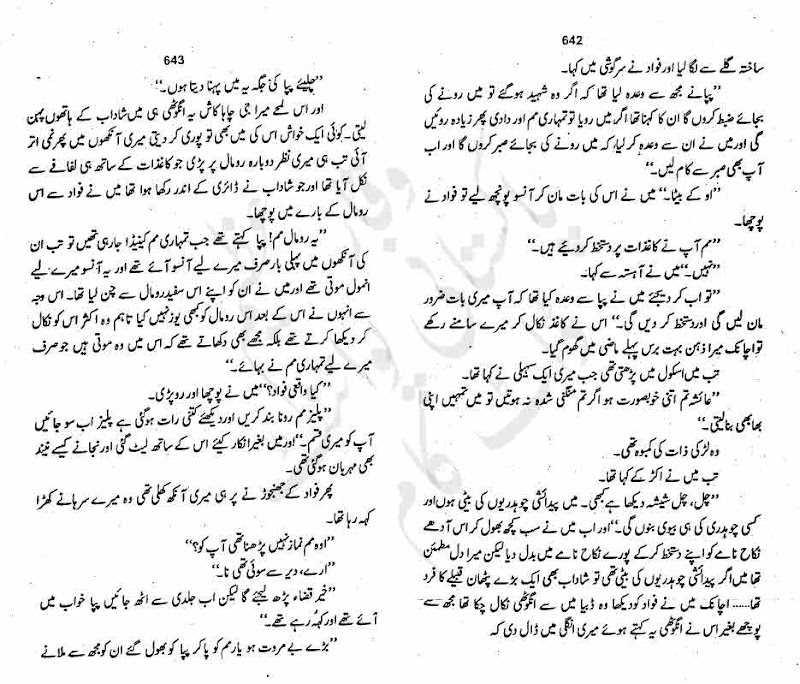 642
ساختہ گلے سے لگا لیا اور فواد نے سرگوشی میں کہا۔
’’پپا نے مجھ سے وعدہ لیا تھا کہ اگر وہ شہید ہو گئے تو میں رونے کی
بجائے ضبط کروں گا ان کا کہنا تھا، اگر میں رویا تو تمہاری مم اور دادی پھر زیادہ روئیں
گی اور میں نے ان سے وعدہ کر لیا، کہ میں رونے کی بجائے صبر کروں گا اور اب
آپ بھی صبر سے کام لیں۔‘‘
’’او کے بیٹا۔‘‘ میں نے اس کی بات مان کر آنسو پونچھ لیے تو فواد نے
پوچھا۔
’’مم آپ نے کاغذات پر دستخط کر دیئے ہیں۔‘‘
’’نہیں۔‘‘ میں نے آہستہ سے کہا۔
’’تو اب کر دیجئے میں نے پپا سے وعدہ کیا تھا کہ آپ میری بات ضرور
مان لیں گی اور دستخط کر دیں گی۔‘‘ اس نے کاغذ نکال کر میرے سامنے رکھے
تو اچانک میرا ذہن بہت برس پہلے ماضی میں گھوم گیا۔
تب میں اسکول میں پڑھتی تھی جب میری ایک سہیلی نے کہا تھا۔
’’عائشہ تم اتنی خوبصورت ہو اگر تم منگنی شدہ نہ ہوتیں تو میں تمہیں اپنی
بھابھی بنا لیتی۔‘‘
وہ لڑکی ذات کی کمبوہ تھی۔
تب میں نے اکڑ کے کہا تھا۔
’’چل، چل شیشہ دیکھا ہے کبھی۔ میں پیدائشی چوہدریوں کی بیٹی ہوں اور
کسی چوہدری کی ہی بیوی بنوں گی۔‘‘ اور اب میں نے سب کچھ بھول کر اس آدھے
نکاح نامے کو اپنے دستخط کر کے پورے نکاح نامے میں بدل دیا لیکن میرا دل مطمئن
تھا میں اگر پیدائشی چوہدریوں کی بیٹی تھی تو شاداب بھی ایک بڑے پٹھان قبیلے کا فرد
تھا...... اچانک میں نے فواد کو دیکھا وہ ڈبیا میں سے انگوٹھی نکال چکا تھا مجھ سے
پوچھے بغیر اس نے انگوٹھی یہ کہتے ہوئے میری انگلی میں ڈال دی کہ
643
’’چلیئے پپا کی جگہ یہ میں پہنا دیتا ہوں۔‘‘
اور اس لمحے میرا جی چاہا کاش یہ انگوٹھی ہی میں شاداب کے ہاتھوں پہن
لیتی۔ کوئی ایک خواہش اس کی میں بھی تو پوری کر دیتی میری آنکھوں میں پھر نمی اتر
آئی تب ہی میری نظر دوبارہ رومال پر پڑی جو کاغذات کے ساتھ ہی لفافے سے
نکل آیا تھا اور جو شاداب نے ڈائری کے اندر رکھا ہوا تھا میں نے فواد سے اس
رومال کے بارے میں پوچھا۔
’’یہ رومال مم! پپا کہتے تھے جب تمہاری مم کینیڈا جا رہی تھیں تو تب ان
کی آنکھوں میں پہلی بار صرف میرے لیے آنسو آئے تھے اور یہ آنسو میرے لیے
انمول موتی تھے اور میں نے ان کو اپنے اس سفید رومال سے چن لیا تھا۔ اس وجہ
سے انہوں نے اس کے بعد اس رومال کو کبھی یوز نہیں کیا تاہم وہ اکثر اس کو نکال
کر دیکھا کرتے تھے بلکہ مجھے بھی دکھاتے تھے کہ اس میں وہ موتی ہیں جو صرف
میرے لیے تمہاری مم نے بہائے۔‘‘
’’کیا واقعی فواد؟‘‘ میں نے پوچھا اور رو پڑی۔
’’پلیز مم رونا بند کریں اور دیکھئے کتنی رات ہو گئی ہے پلیز اب سو جائیں
آپ کو میری قسم۔‘‘ اور میں بغیر انکار کیئے اس کے ساتھ لیٹ گئی اور نجانے کیسے نیند
بھی مہربان ہو گئی تھی۔
پھر فواد کے جھنجوڑنے پر ہی میری آنکھ کھلی تھی وہ میرے سرہانے کھڑا
کہہ رہا تھا۔
’’اوہ مم نماز نہیں پڑھنا تھی آپ کو؟‘‘
’’ارے، دیر سے سوئی تھی نا۔‘‘
’’خیر قضاء پڑھ لیجئے گا لیکن اب جلدی سے اٹھ جائیں پپا خواب میں
آئے تھے اور کہہ رہے تھے۔‘‘
’’بڑے بے مروت ہو یار مم کو پا کر پپا کو بھول گئے ان کو مجھ سے ملانے